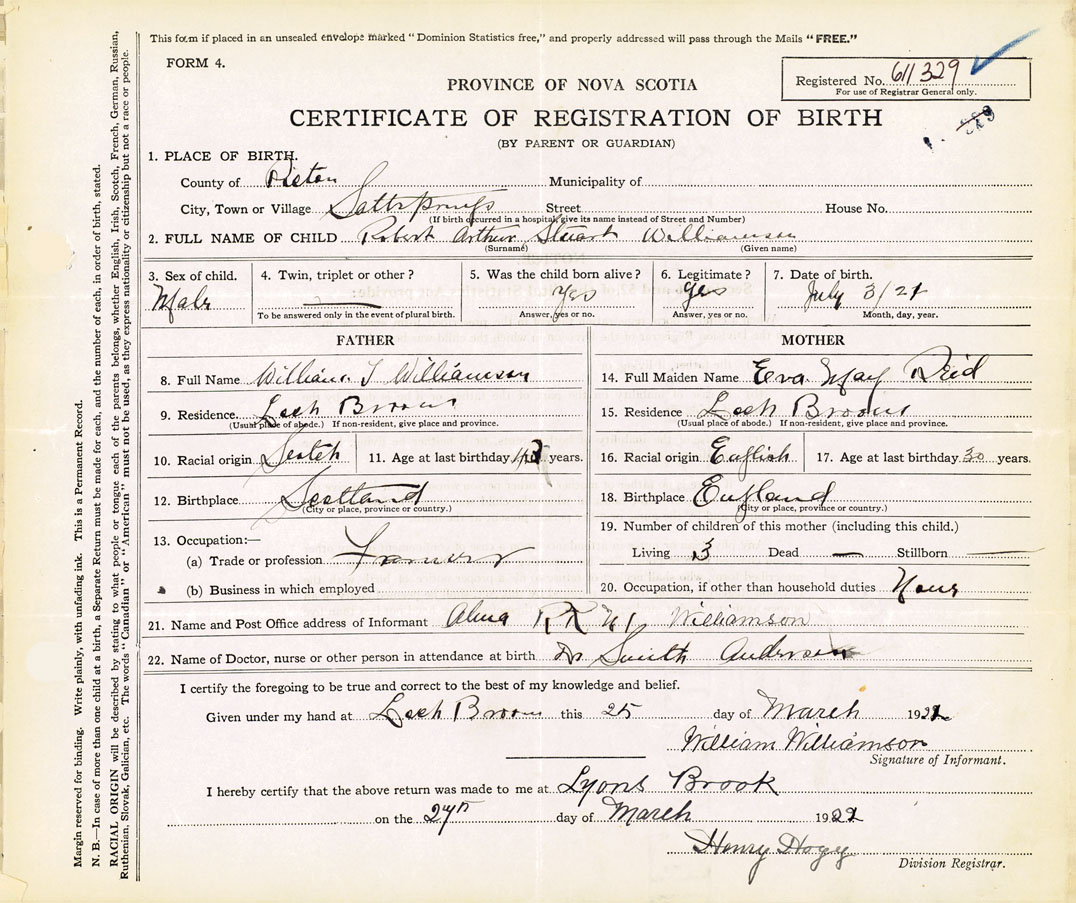 This form if placed in an unsealed envelope marked "Dominion Statistics free," and properly addressed will pass through the Mails "FREE."
FORM 4.
Registered No. 611329
For use of Registrar General only.
PROVINCE OF NOVA SCOTIA
CERTIFICATE OF REGISTRATION OF BIRTH
(BY PARENT OR GUARDIAN)
1. PLACE OF BIRTH.
County of Pictou Municipality of
City, Town or Village Saltsprings Street House No.
(If birth occurred in a hospital, give its name instead of Street and Number)
2. FULL NAME OF CHILD Robert Arthur Stuart Williamson
(Surname) (Given name)
3. Sex of child. 4. Twin, triplet or other? 5. Was the child born alive? 6. Legitimate? 7. Date of birth.
Male — Yes Yes July 3/21
To be answered only in the event of plural birth. Answer, yes or no. Answer, yes or no. Month, day, year.
FATHER MOTHER
8. Full Name William J Williamson 14. Full Maiden Name Eva May Reid
9. Residence. Loch Broom 15. Residence Loch Broom
(Usual place of abode.) If non-resident, give place and province. (Usual place of abode.) If non-resident, give place and province.
10. Racial origin Scotch 11. Age at last birthday years. 16. Racial origin English 17. Age at last birthday 30 years.
12. Birthplace Scotland 18. Birthplace England
(City or place, province or country.) (City or place, province or country.)
13. Occupation:— 19. Number of children of this mother (including this child.)
(a) Trade or profession Farmer Living 3 Dead — Stillborn —
(b) Business in which employed 20. Occupation, if other than household duties None
21. Name and Post Office address of Informant Alma RR Williamson
22. Name of Doctor, nurse or other person in attendance at birth Dr Smith Anderson
I certify the foregoing to be true and correct to the best of my knowledge and belief.
Given under my hand at Loch Broom this 25 day of March 1922
William Williamson
Signature of Informant.
I hereby certify that the above return was made to me at Lyons Brook
on the 27th day of March 1922
Henry
Division Registrar.
Margin reserved for binding. Write plainly, with unfading ink. This is a Permanent Record.
N. B.—In case of more than one child at a birth, a Separate Return must be made for each, and the number of each, in order of birth, stated.
RACIAL ORIGIN will be described by stating to what people or tongue each of the parents belongs, whether English, Irish, Scotch, French, German, Russian,
Ruthenian, Slovak, Galician, etc. The words "Canadian" or "American" must not be used, as they express nationality or citizenship but not a race or people.